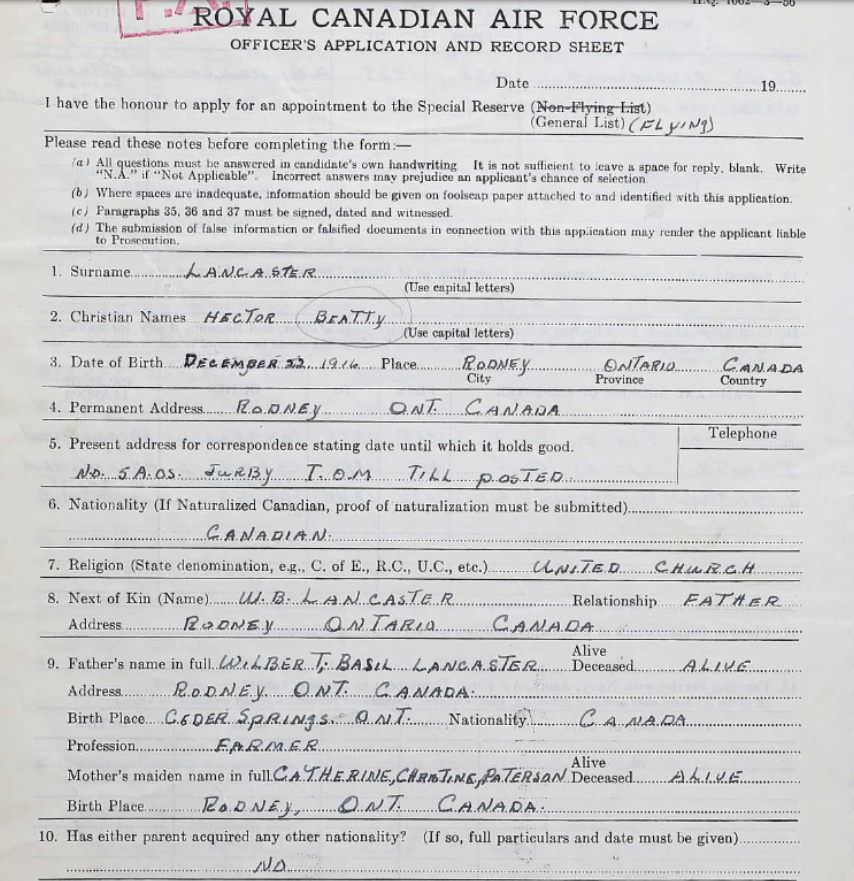 ROYAL CANADIAN AIR FORCE
OFFICER'S APPLICATION AND RECORD SHEET
Date 19
I have the honour to apply for an appointment to the Special Reserve (Non-Flying List)
(General List) (FLYING)
Please read these notes before completing the form:—
(a) All questions must be answered in candidate's own handwriting It is not sufficient to leave a space for reply, blank. Write
"N.A." if "Not Applicable". Incorrect answers may prejudice an applicant's chance of selection
(b) Where spaces are inadequate, information should be given on foolscap paper attached to and identified with this application.
(c) Paragraphs 35, 36 and 37 must be signed, dated and witnessed.
(d) The submission of false information or falsified documents in connection with this application may render the applicant liable
to Prosecution.
1. Surname LANCASTER
(Use capital letters)
2. Christian Names HECTOR BEATTY
(Use capital letters)
3. Date of Birth DECEMBER 22, 1916 Place RODNEY ONTARIO CANADA
City Province Country
4. Permanent Address RODNEY ONT. CANADA
Telephone
5. Present address for correspondence stating date until which it holds good.
NO. 5 A.OS. JURBY I.OM TILL POSTED.
6. Nationality (If Naturalized Canadian, proof of naturalization must be submitted)
CANADIAN.
7. Religion (State denomination, e.g., C. of E., R.C., U.C., etc.) UNITED CHURCH
8. Next of Kin (Name) W. B. LANCASTER Relationship FATHER
Address RODNEY ONTARIO CANADA
Alive
9. Father's name in full WILBERT, BASIL LANCASTER Deceased ALIVE
Address RODNEY. ONT. CANADA.
Birth Place CEDER SPRINGS. ONT. Nationality CANADA
Profession FARMER
Alive
Mother's maiden name in full CATHERINE, CHRISTINE, PATERSON Deceased ALIVE
Birth Place RODNEY, ONT. CANADA.
10. Has either parent acquired any other nationality? (If so, full particulars and date must be given)
NO